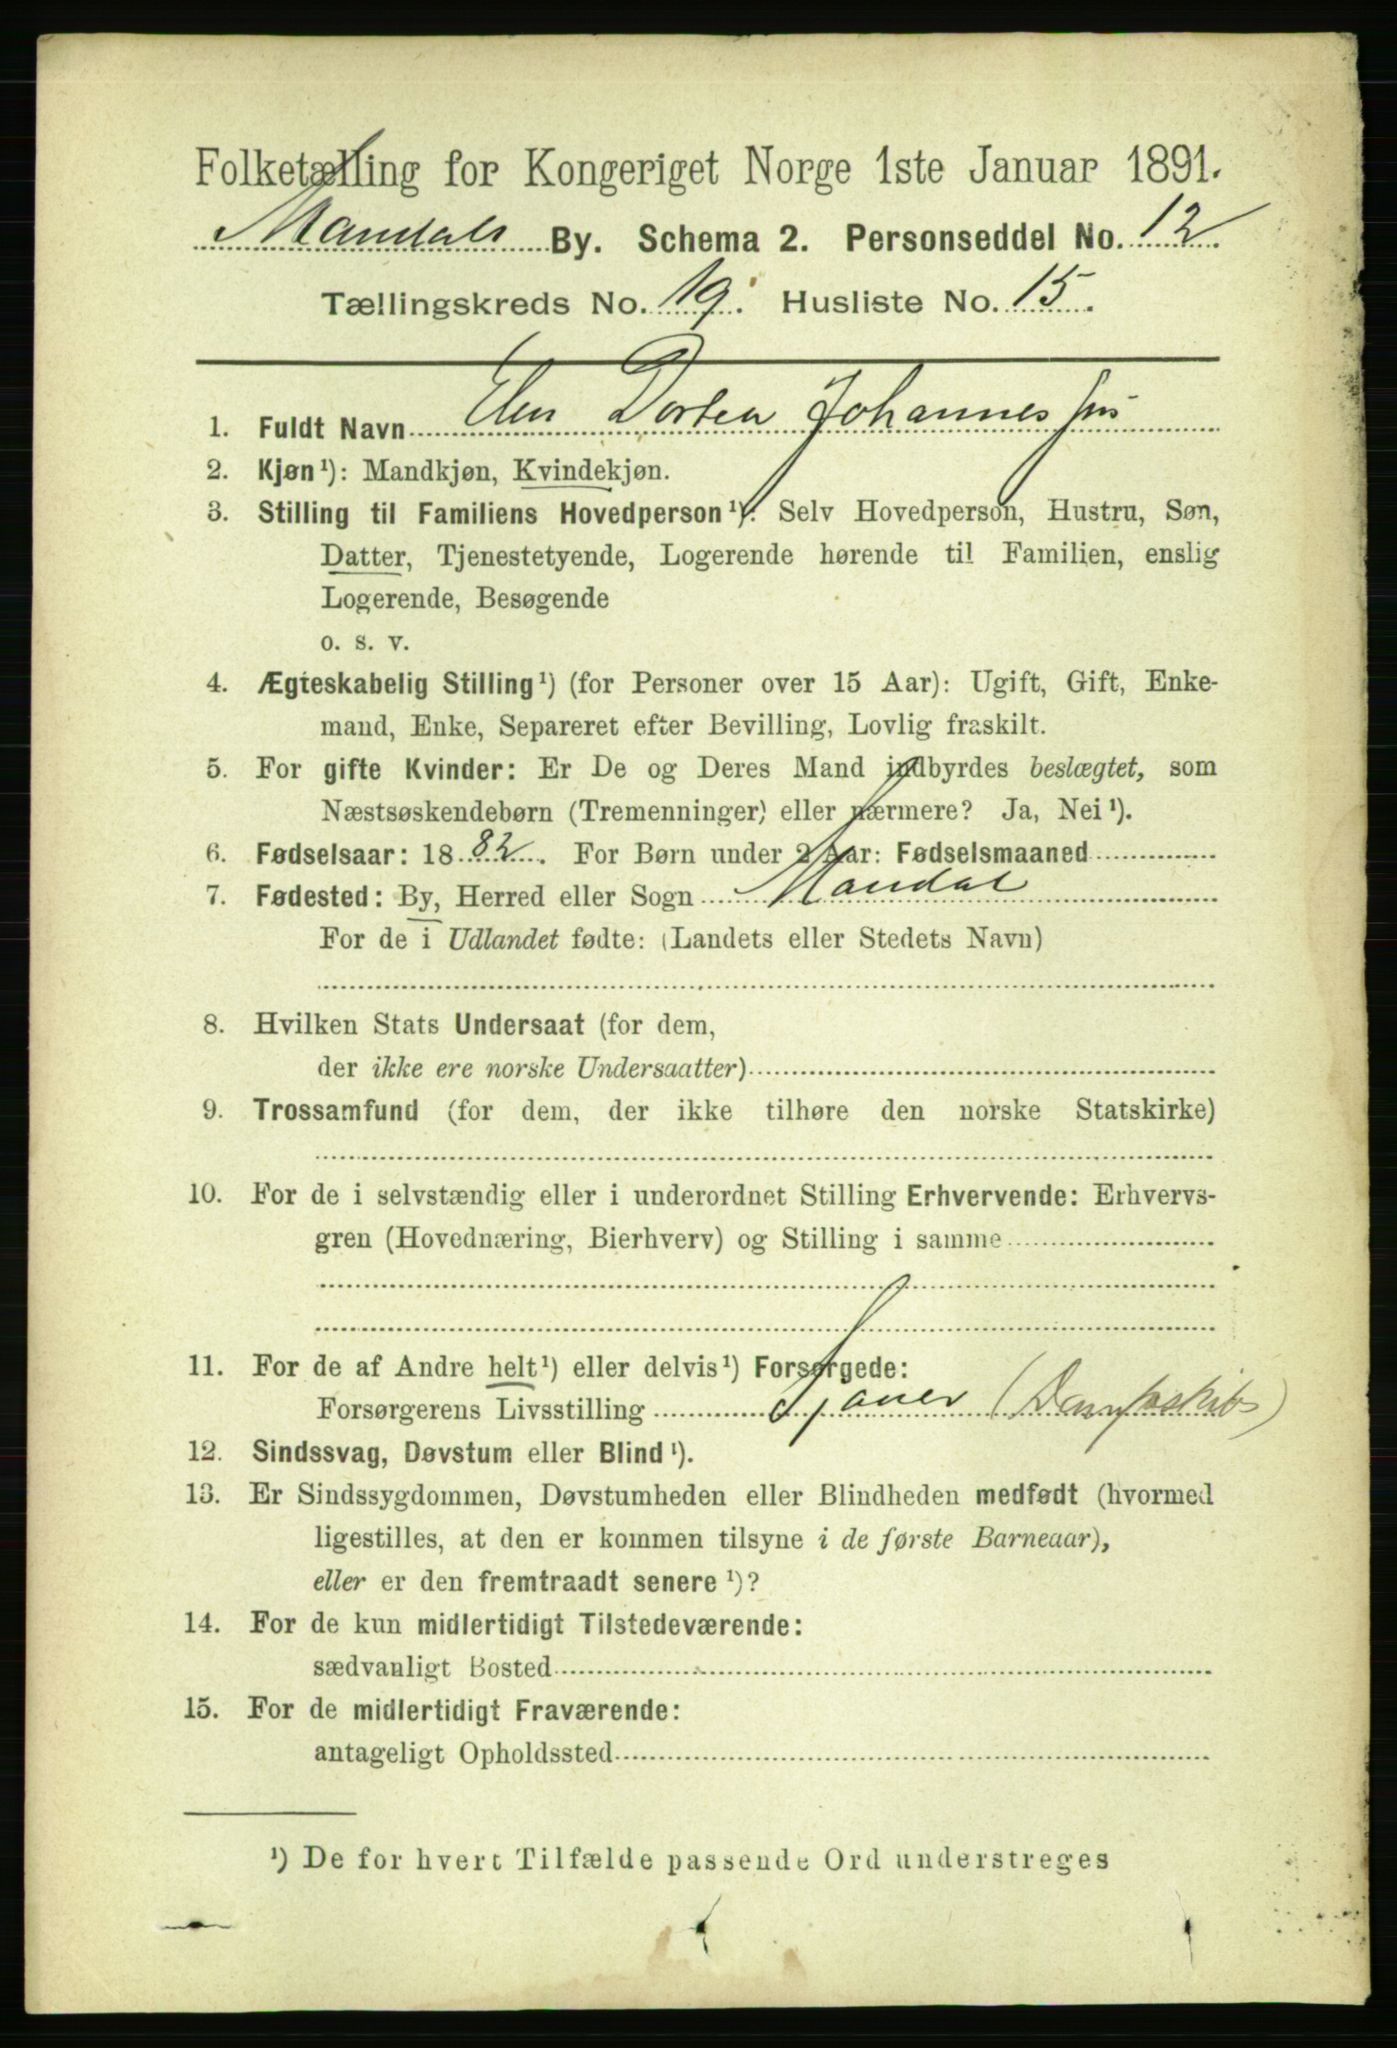 Folketælling for Kongeriget Norge 1ste Januar 1891.
Mandals By. Schema 2. Personseddel No. 12.
Tællingskreds No. 19. Husliste No. 15.
1. Fuldt Navn Elen Dortea Johannessen
2. Kjøn¹): Mandkjøn, Kvindekjøn.
3. Stilling til Familiens Hovedperson¹): Selv Hovedperson, Hustru, Søn,
Datter, Tjenestetyende, Logerende hørende til Familien, enslig
Logerende, Besøgende
o. s. v.
4. Ægteskabelig Stilling¹) (for Personer over 15 Aar): Ugift, Gift, Enke-
mand, Enke, Separeret efter Bevilling, Lovlig fraskilt.
5. For gifte Kvinder: Er De og Deres Mand indbyrdes beslægtet, som
Næstsøskendebørn (Tremenninger) eller nærmere? Ja, Nei¹).
6. Fødselsaar: 1882. For Børn under 2 Aar: Fødselsmaaned
7. Fødested: By, Herred eller Sogn Mandal
For de i Udlandet fødte: (Landets eller Stedets Navn)
8. Hvilken Stats Undersaat (for dem,
der ikke ere norske Undersaatter)
9. Trossamfund (for dem, der ikke tilhøre den norske Statskirke)
10. For de i selvstændig eller i underordnet Stilling Erhvervende: Erhvervs-
gren (Hovednæring, Bierhverv) og Stilling i samme
11. For de af Andre helt¹) eller delvis¹) Forsørgede:
Forsørgerens Livsstilling (Dampskibs)
12. Sindssvag, Døvstum eller Blind¹).
13. Er Sindssygdommen, Døvstumheden eller Blindheden medfødt (hvormed
ligestilles, at den er kommen tilsyne i de første Barneaar),
eller er den fremtraadt senere¹)?
14. For de kun midlertidigt Tilstedeværende:
sædvanligt Bosted
15. For de midlertidigt Fraværende:
antageligt Opholdssted
¹) De for hvert Tilfælde passende Ord understreges